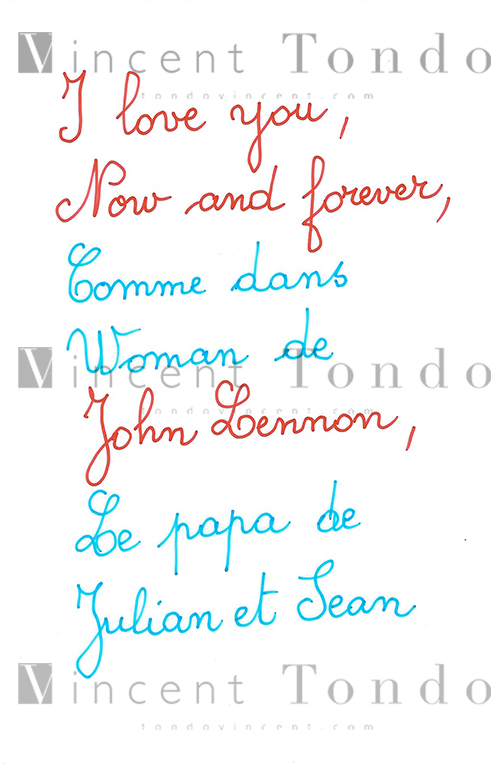 Vincent Tondo
tondovincent.com
I love you,
Now and forever,
Comme dans
Woman de
Vincent Tondo
tondovincent.com
John Lennon,
Le papa de
Julian et Sean
Vincent Tondo
tondovincent.com